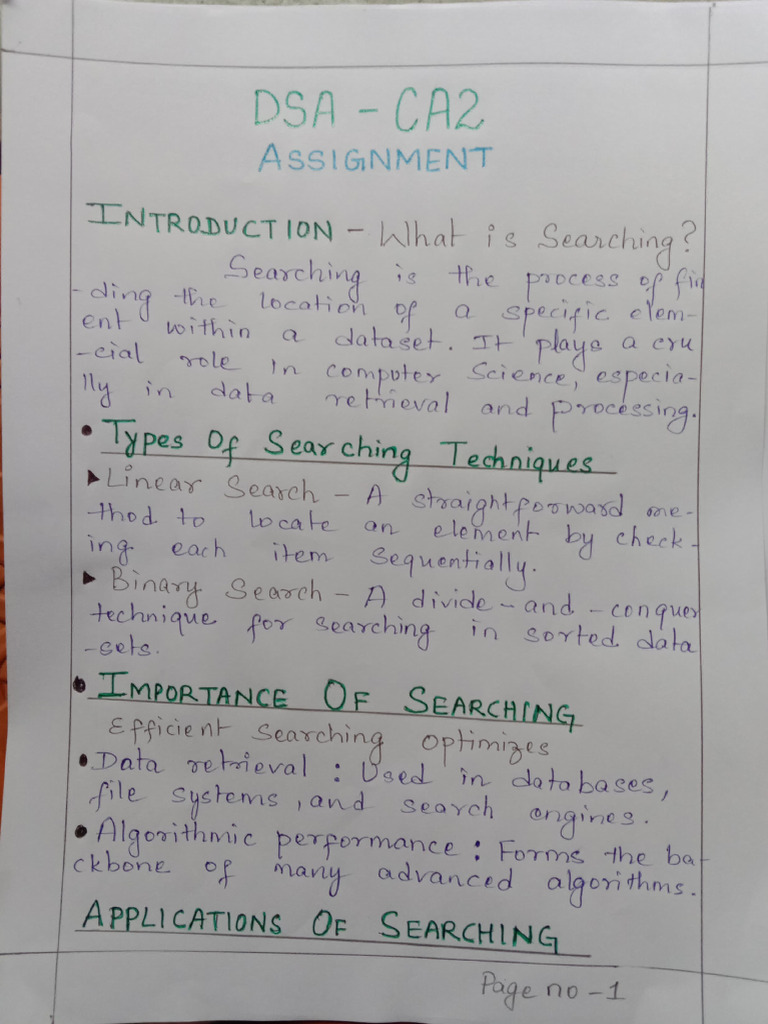 DSA - CA2
ASSIGNMENT
INTRODUCTION - What is Searching?
Searching is the process of fin
-ding the location of a specific elem-
ent within a dataset. It plays a cru
-cial role in computer Science, especia-
lly in data retrieval and processing.
• Types Of Searching Techniques
➤ Linear Search - A straightforward me-
thod to locate an element by check-
ing each item sequentially.
➤ Binary Search - A divide-and-conquer
technique for searching in sorted data
-sets.
• IMPORTANCE OF SEARCHING
Efficient searching optimizes
• Data retrieval : Used in databases,
file systems, and search engines.
• Algorithmic performance : Forms the ba-
ckbone of many advanced algorithms.
APPLICATIONS OF SEARCHING
Page no - 1